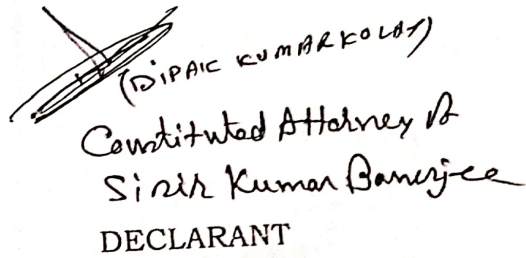 (DIPAK KUMAR KOLAY)
Constituted Attorney of
Sisir Kumar Banerjee
DECLARANT